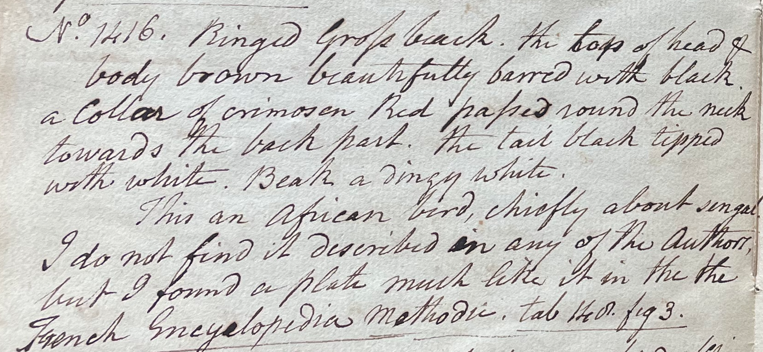 No. 1416. Ringed Grossbeack. the top of head &
body brown beautifully barred with black.
a Collar of crimosen Red passed round the neck
towards the back part. the tail black tipped
with white. Beak a dingy white.
This an African bird, chiefly about sengal.
I do not find it described in any of the Authors,
but I found a plate much like it in the the
French Encyclopedia Methodic. tab 148. fig 3.